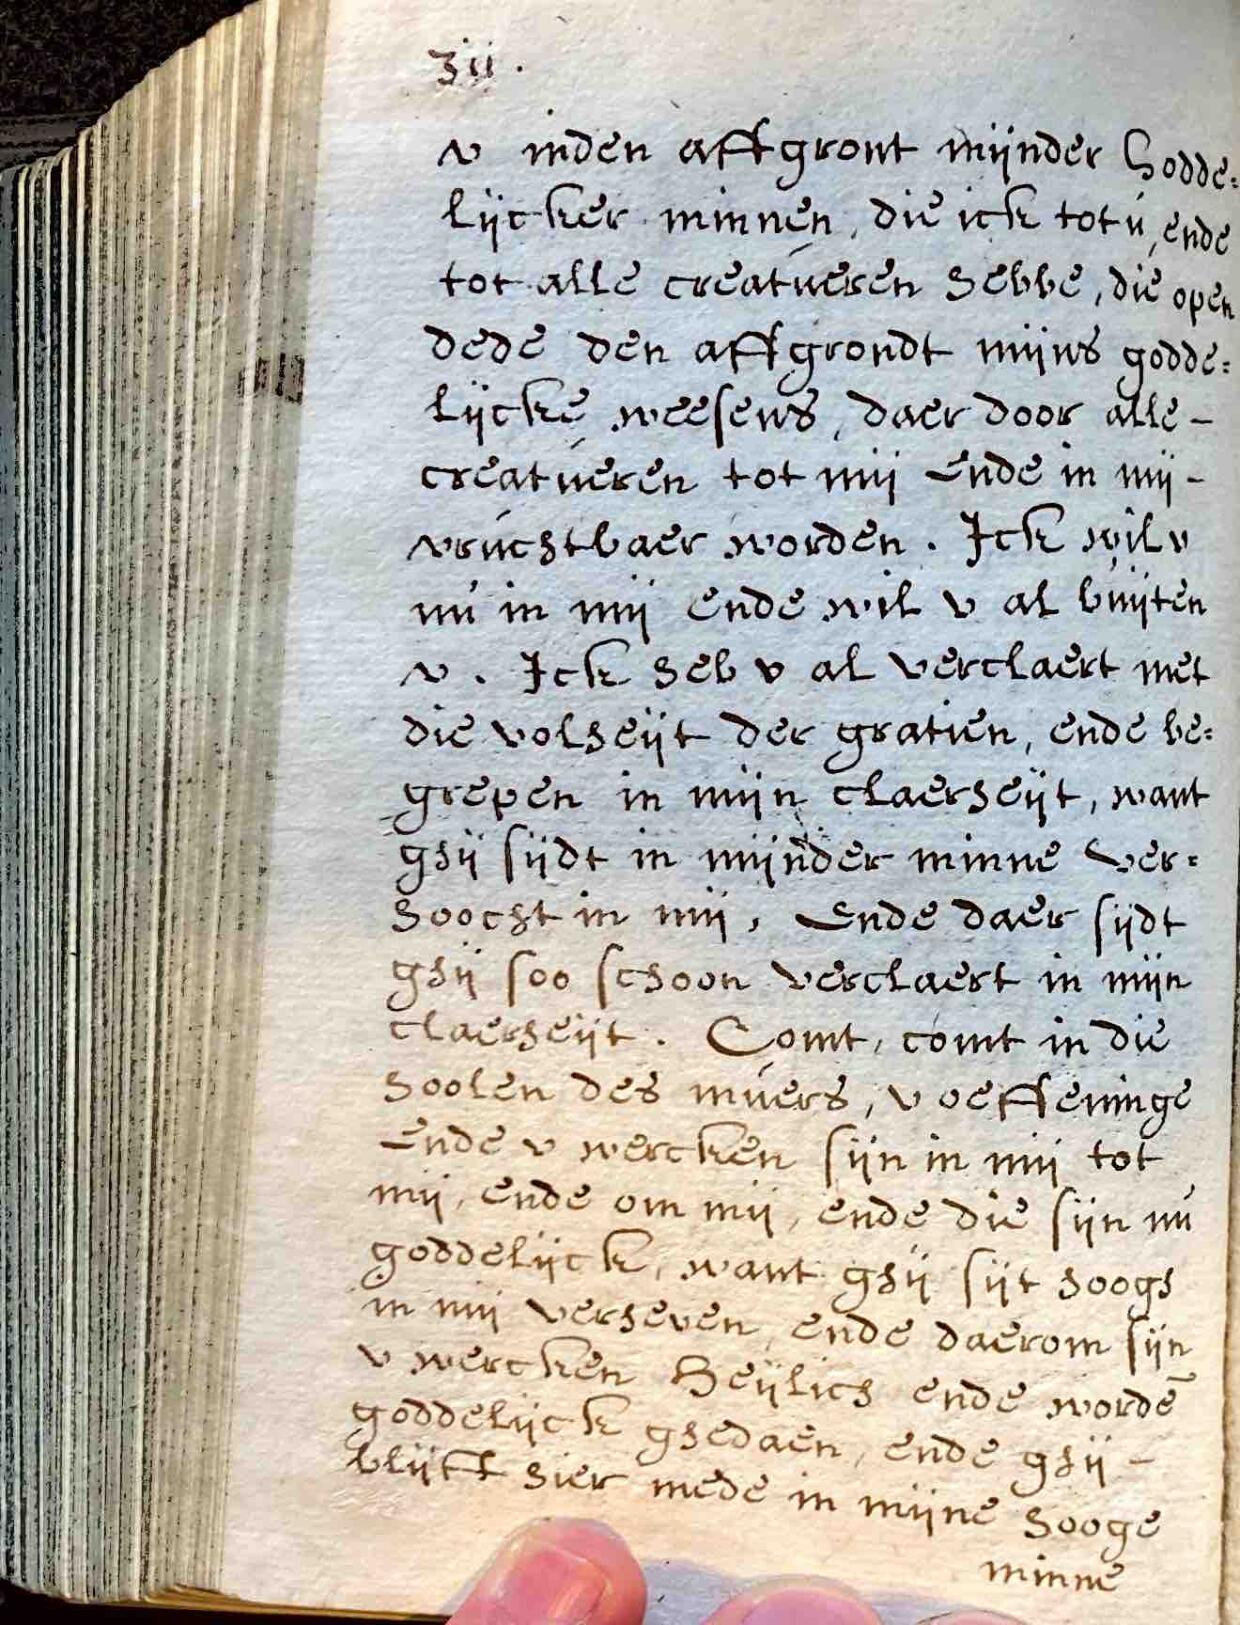 311.
v inden affgront mijnder Godde=
lijcker minnen, die ick tot ú, ende
tot alle creatueren hebbe, die open
dede den affgrondt mijns godde=
lijcke weesens, daer door alle -
creatúeren tot mij Ende in mij -
vrúchtbaer worden. Ick wil v
nú in mij ende wil v al búijten
v. Ick heb v al verclaert met
die volheijt der gratien, ende be=
grepen in mijn claerheijt, want
ghij sijdt in mijnder minne ver=
hoocht in mij, Ende daer sijdt
ghij soo schoon verclaert in mijn
claerheijt. Comt, comt in die
hoolen des múers, v oeffeninge
Ende v wercken sijn in mij tot
mij, ende om mij, ende die sijn nú
goddelijck, want ghij sijt hoogh
in mij verheven, ende daerom sijn
v wercken Heijlich ende wordē
goddelijck ghedaen, ende ghij -
blijfft hier mede in mijne hooge
minne